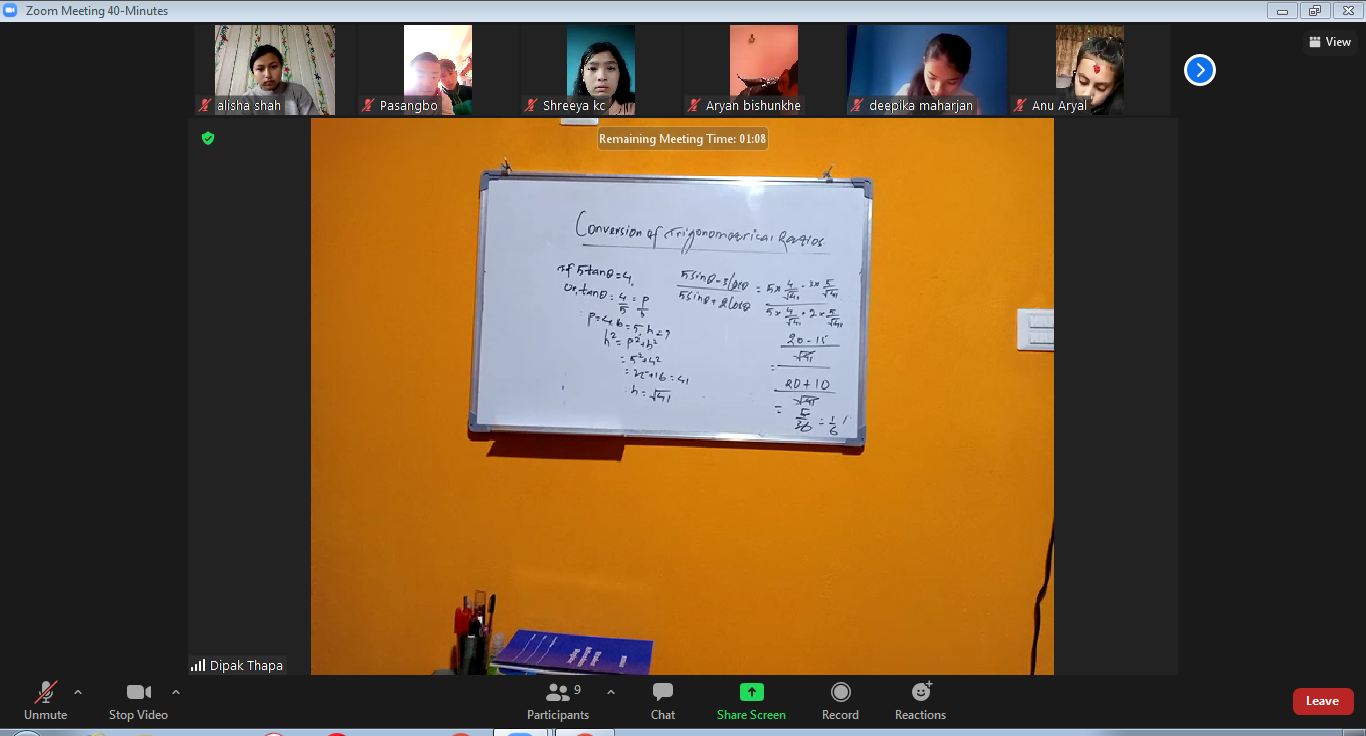 Zoom Meeting 40-Minutes
View
alisha shah
Pasangbo
Shreeya kc
Aryan bishunkhe
deepika maharjan
Anu Aryal
Remaining Meeting Time: 01:08
Conversion of Trigonometrical Ratios
if 5tanθ=4,
or, tanθ = 4/5 = p/b
p=4, b=5, h=?
h² = p²+b²
= 5²+4²
= 25+16 = 41
h = √41
5sinθ-3cosθ / 5sinθ+2cosθ = 5× 4/√41 - 3× 5/√41 / 5× 4/√41 + 2× 5/√41
= 20-15 / √41 / 20+10 / √41
= 5/30 = 1/6
Dipak Thapa
Unmute
Stop Video
Participants
9
Chat
Share Screen
Record
Reactions
Leave